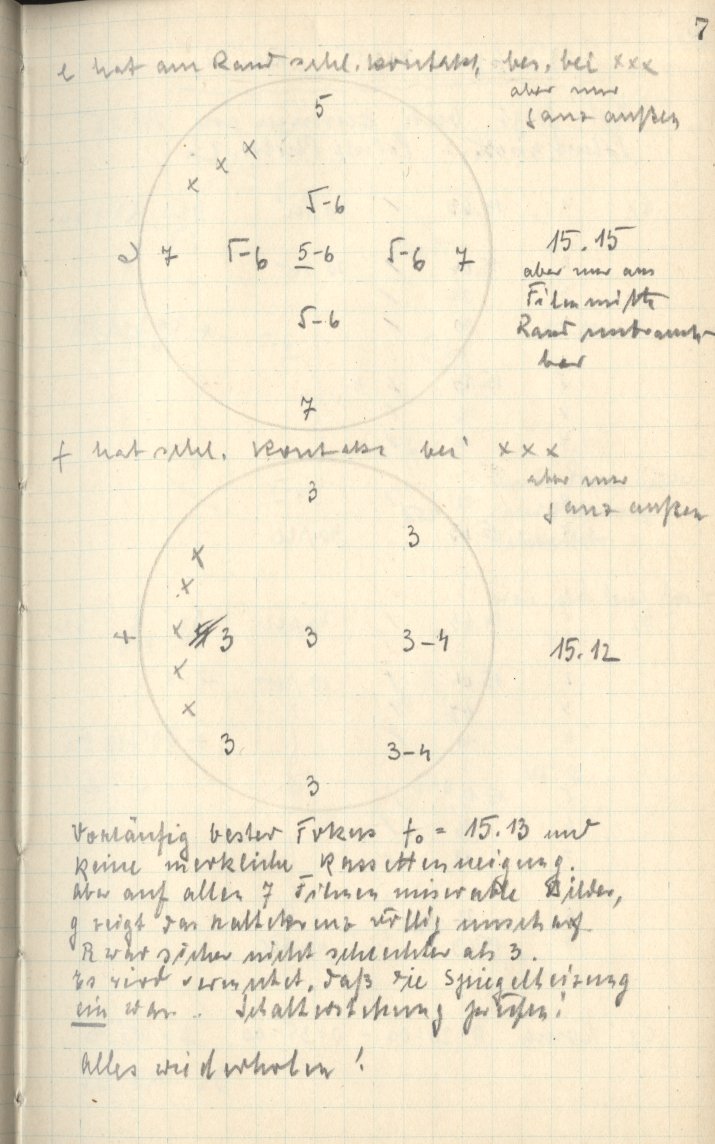 7
e hat am Rand schl. Kontakt, bes. bei xxx
aber nur
ganz außen
5
x
x
x
5-6
e 7 5-6 5-6 5-6 7
15.15
aber nur am
Filmmitte
Rand unbrauch-
bar
5-6
7
f hat schl. Kontakt bei x x x
aber nur
ganz außen
3
3
x
x
f x 3 3 3-4
15.12
x
x
3
3-4
3
Vorläufig bester Fokus f₀ = 15.13 und
keine merkliche Kassettenneigung.
Aber auf allen 7 Filmen miserable Bilder,
g zeigt das Haltekreuz völlig unscharf
R war sicher nicht schlechter als 3.
Es wird vermutet, daß die Spiegelheizung
ein war. Schalterstellung prüfen!
Alles wiederholen!